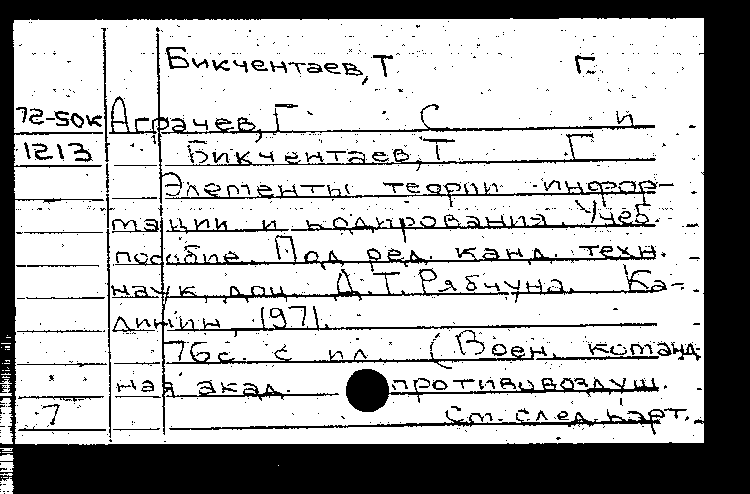 Бикчентаев, Т Г.
72-50к Аграчев, Г С и
1213 Бикчентаев, Т Г
Элементы теории инфор-
мации и кодирования. Учеб.
пособие. Под ред. канд. техн.
наук, доц. Д. Т. Рябчуна. Ка-
линин, 1971.
76с. с ил. (Воен. команд-
ная акад. противовоздуш.
7 См. след. карт.